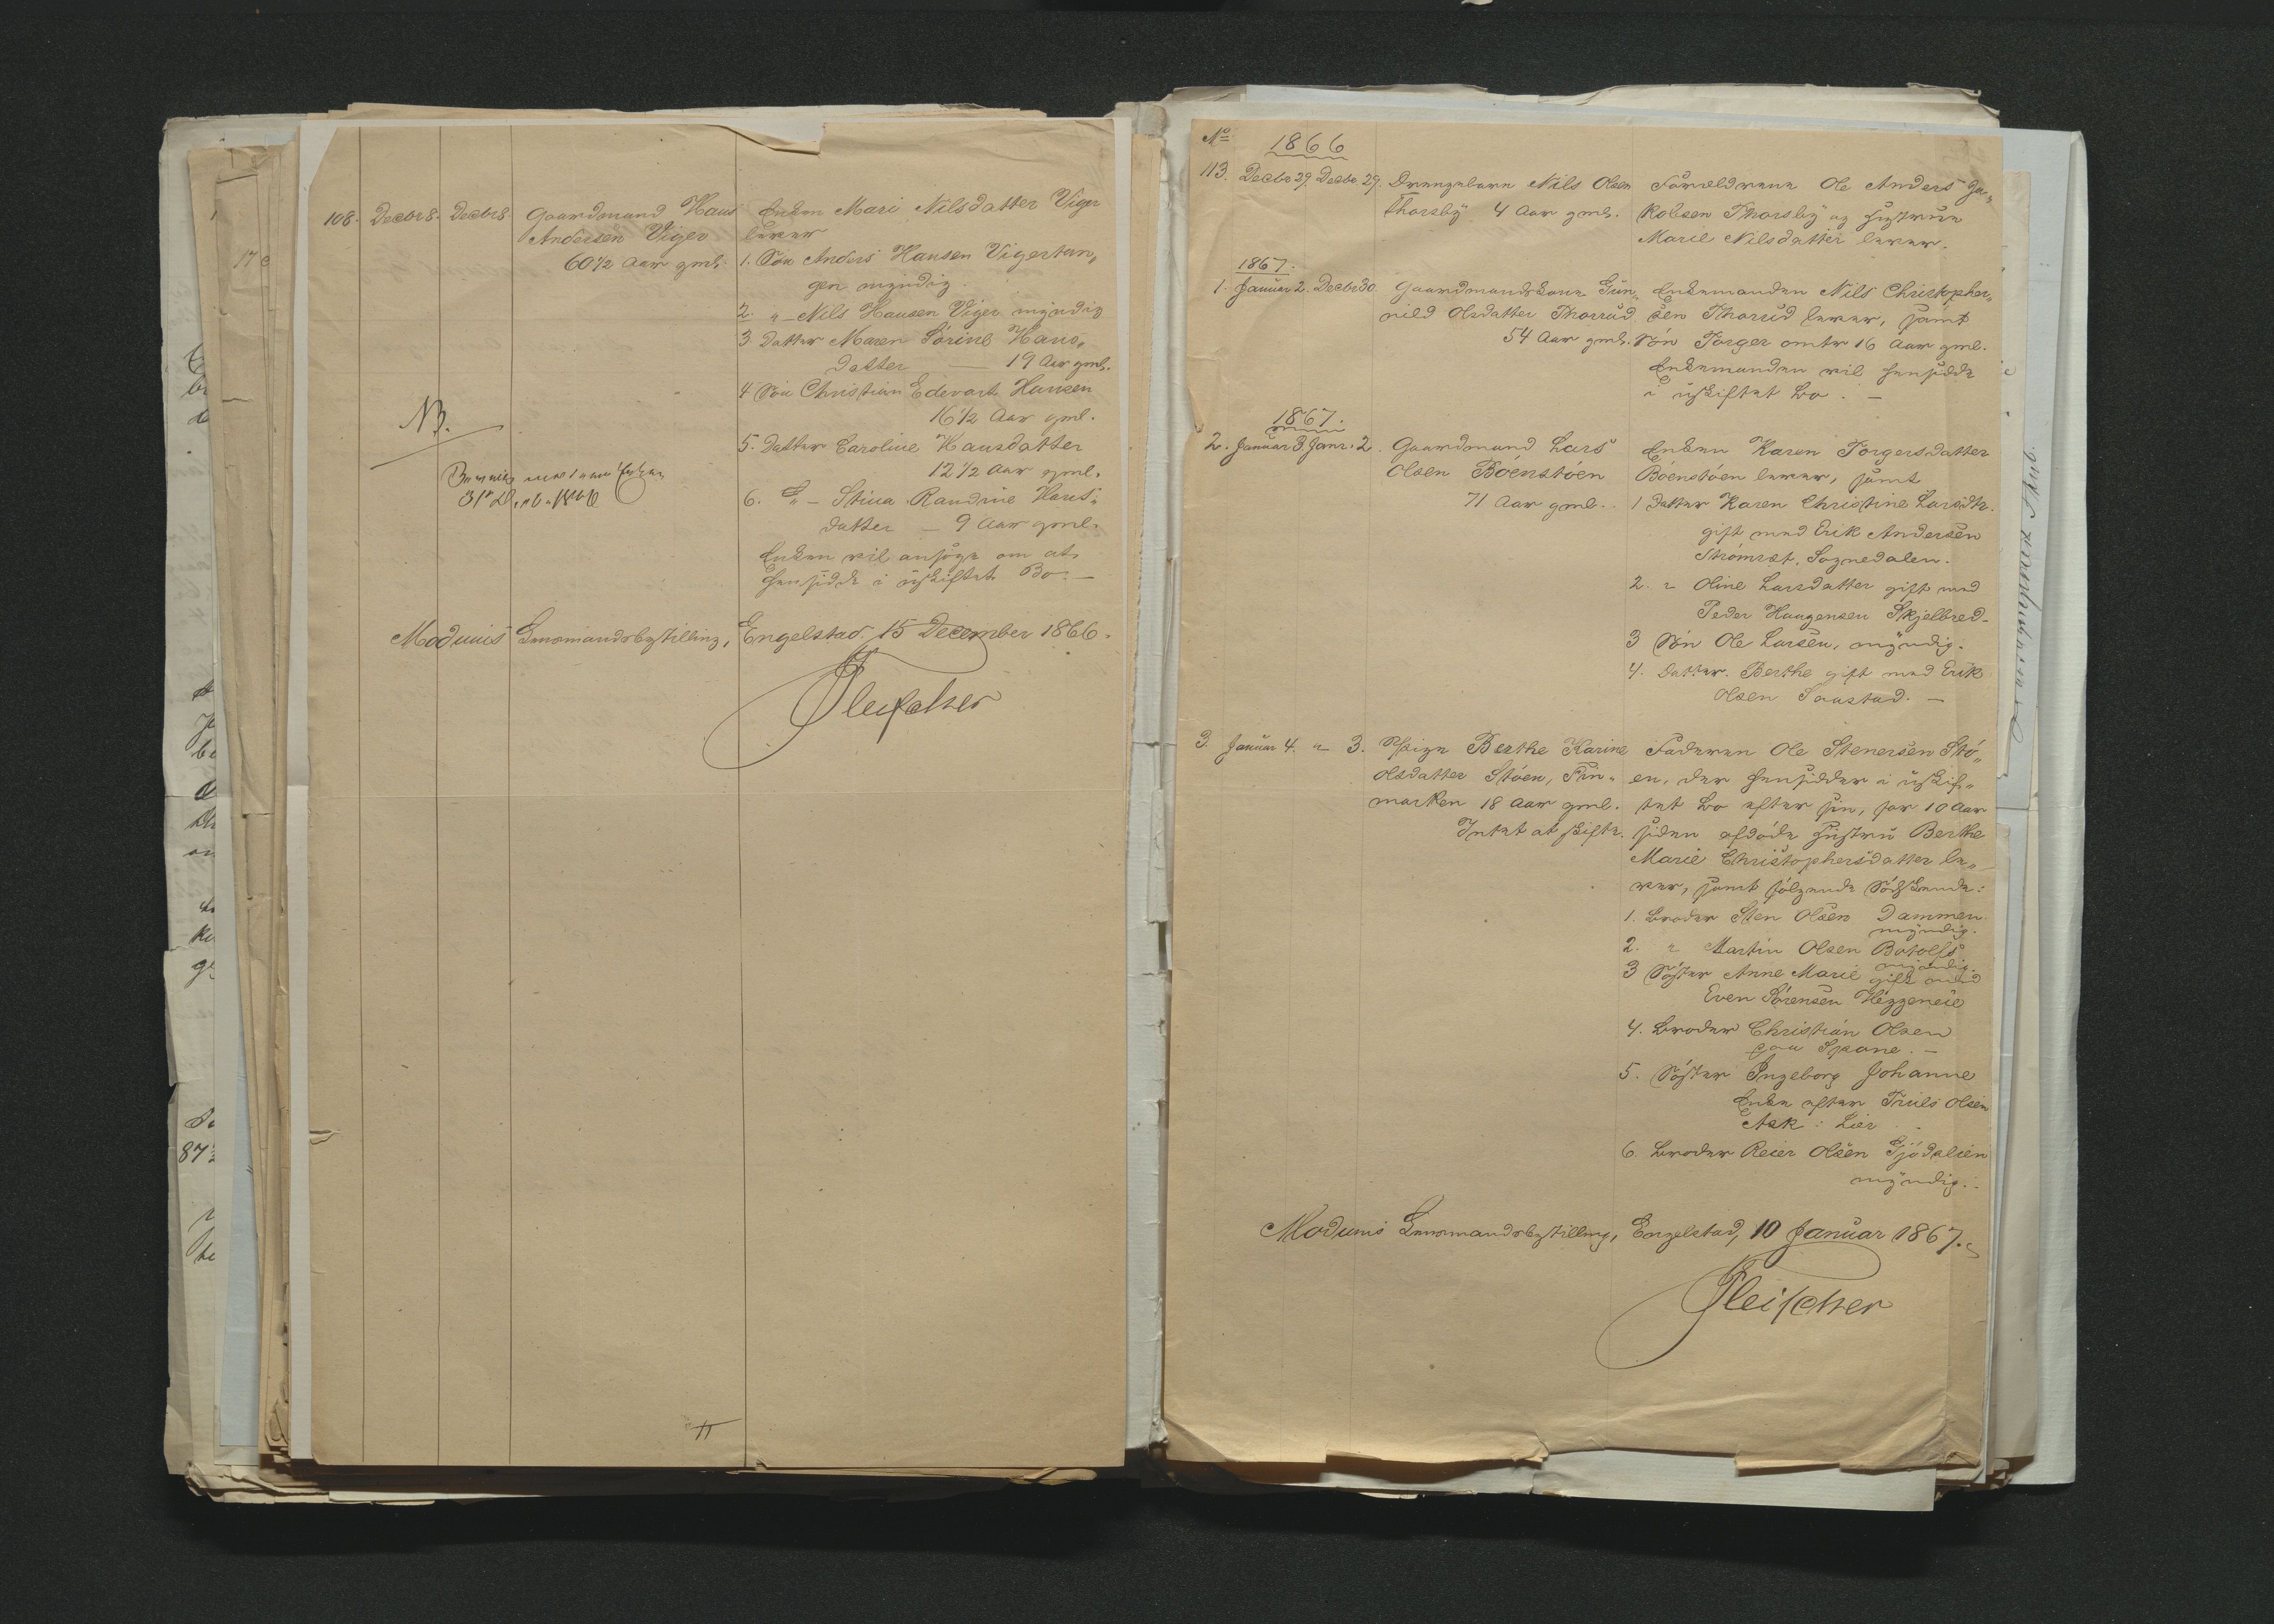 108. Decbr 8. Decbr 8. Gaardmand Hans Enken Mari Nilsdatter Viger
Andersen Viger lever
60 1/2 Aar gml. 1. Søn Anders Hansen Vigertan„
gen myndig.
2. „ – Nils Hansen Viger myndig
3. Datter Maren Sörine Hans„
datter — 19 Aar gml.
4 Søn Christian Edevart Hansen
16 1/2 Aar gml.
NB.
5. Datter Caroline Hansdatter
12 1/2 Aar gml.
6. „ – Stina Randine Hans„
datter – 9 Aar gml.
Enken vil ansøge om at
hensidde i uskiftet Bo. –
Modums Lensmandsbestilling, Engelstad 15 December 1866.
Fleischer
No 1866
113. Decbr 29. Decbr 29. Drengebarn Nils Olsen Forældrene Ole Anders Ja„
Thorsby 4 Aar gml. kobsen Thorsby og Hustrue
Marie Nilsdatter lever.
1867.
1. Januar 2. Decbr 30. Gaardmandskone Gun„ Enkemanden Nils Christopher„
nild Olsdatter Thorrud sen Thorrud lever, samt
54 Aar gml. Søn Torger omtr 16 Aar gml.
Enkemanden vil hensidde
i uskiftet Bo. –
1867.
2. Januar 3. Janr. 2. Gaardmand Lars Enken Karen Torgersdatter
Olsen Böenstöen Böenstöen lever, samt
71 Aar gml. 1 Datter Karen Christine Larsdtr.
gift med Erik Andersen
Strömsæt, Sognedalen.
2. „ Oline Larsdatter gift med
Peder Haagensen Skjelbred.
3 Søn Ole Larsen, myndig.
4. Datter Berthe gift med Erik
Olsen Saastad. –
3. Januar 4. „ 3. Pige Berthe Karine Faderen Ole Stenersen Stö„
Olsdatter Stöen, Fin„ en, der hensidder i uskif„
marken 18 Aar gml. tet Bo efter sin, for 10 Aar
Intet at skifte. siden afdöde Hustru Berthe
Marie Christophersdatter le„
ver, samt fölgende Södskende:
1. Broder Sten Olsen Dammen
myndig.
2. „ Martin Olsen Botolfs
myndig.
3 Söster Anne Marie gift med
Even Sörensen Heggeneie
4. Broder Christian Olsen
paa Spone. –
5. Söster Ingeborg Johanne
Enke efter Truls Olsen
Ask i Lier
6. Broder Reier Olsen Gjödalien
myndig. –
Modums Lensmandsbestilling, Engelstad, 10 Januar 1867.
Fleischer